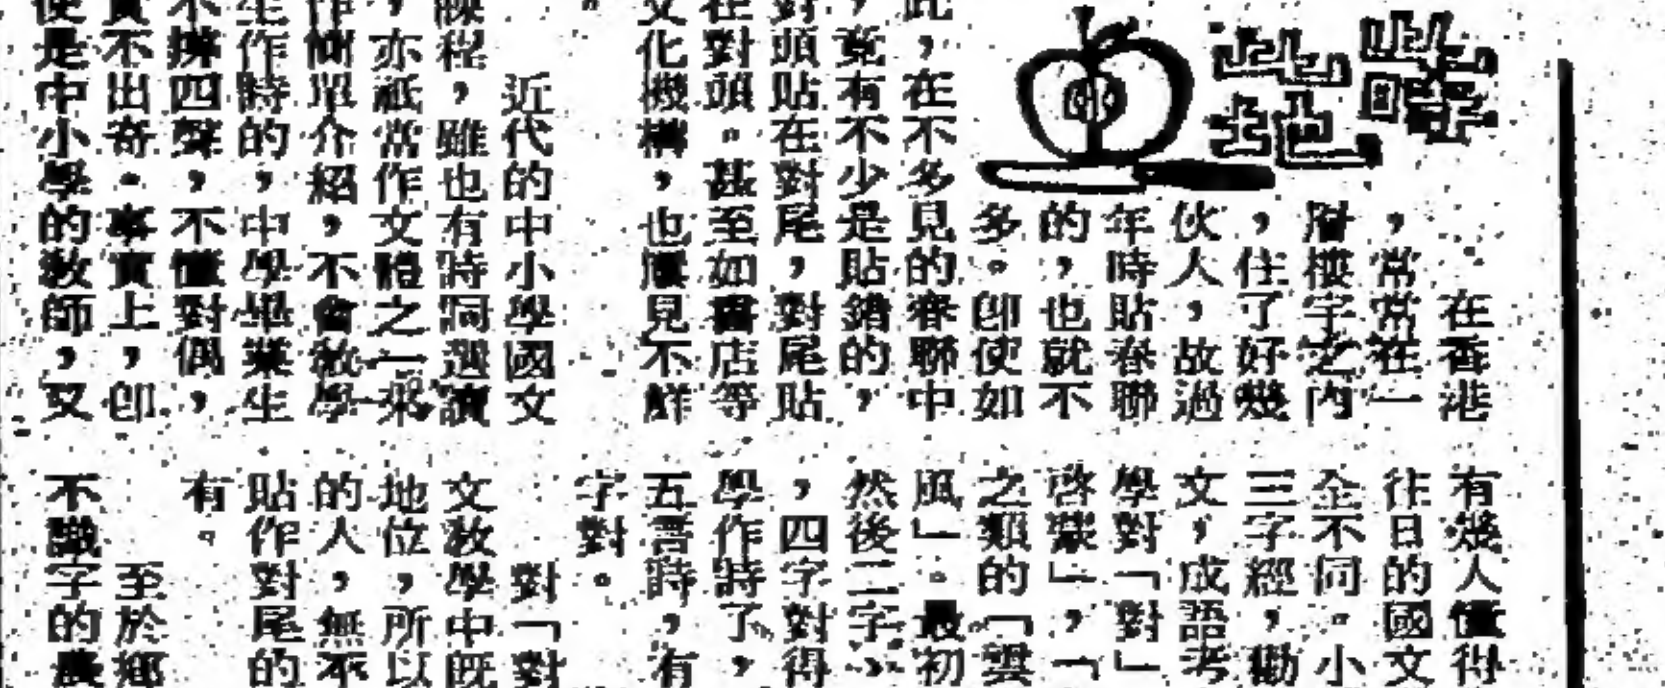 在香港
，常常在一
層樓宇之內
，住了好幾
伙人，故過
年時貼春聯
的，也就不
多。即使如
此，在不多見的春聯中
，竟有不少是貼錯的，
對頭貼在對尾，對尾貼
在對頭。甚至如書店等
文化機構，也屢見不鮮
。
近代的中小學國文
程，雖也有詩詞選讀
，亦祇當作文體之一來
作簡單介紹，不會教學
生作詩的，中學畢業生
不辨四聲，不懂對偶，
實不出奇。事實上，即
使是中小學的教師，又
有幾人懂得
往日的國文
全不同。小
三字經，勵
文，成語考
學對「對」
啓蒙」，「
之類的「雲
風」。最初
然後二字、
，四字對得
學作詩了，
五言詩，有
字對。
對「對
文教學中既
地位，所以
的人，無不
貼作對尾的
有。
至於鄉
不識字的農